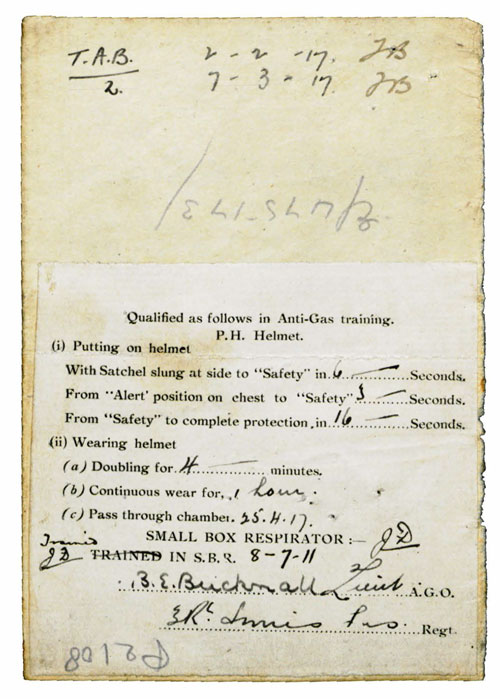 T.A.B. 2 - 2 - 17. JB
2. 7 - 3 - 17. JB
Qualified as follows in Anti-Gas training.
P.H. Helmet.
(i) Putting on helmet
With Satchel slung at side to "Safety" in 6 — Seconds.
From "Alert' position on chest to "Safety" 3 — Seconds.
From "Safety" to complete protection in 16 — Seconds.
(ii) Wearing helmet
(a) Doubling for 4 — minutes.
(b) Continuous wear for, 1 hour.
(c) Pass through chamber. 25.4.17.
SMALL BOX RESPIRATOR :—
Trained
TRAINED IN S.B.R. 8-7-11
B.E. Bucknall Lieut A.G.O.
3 R. Innis Fus. Regt.